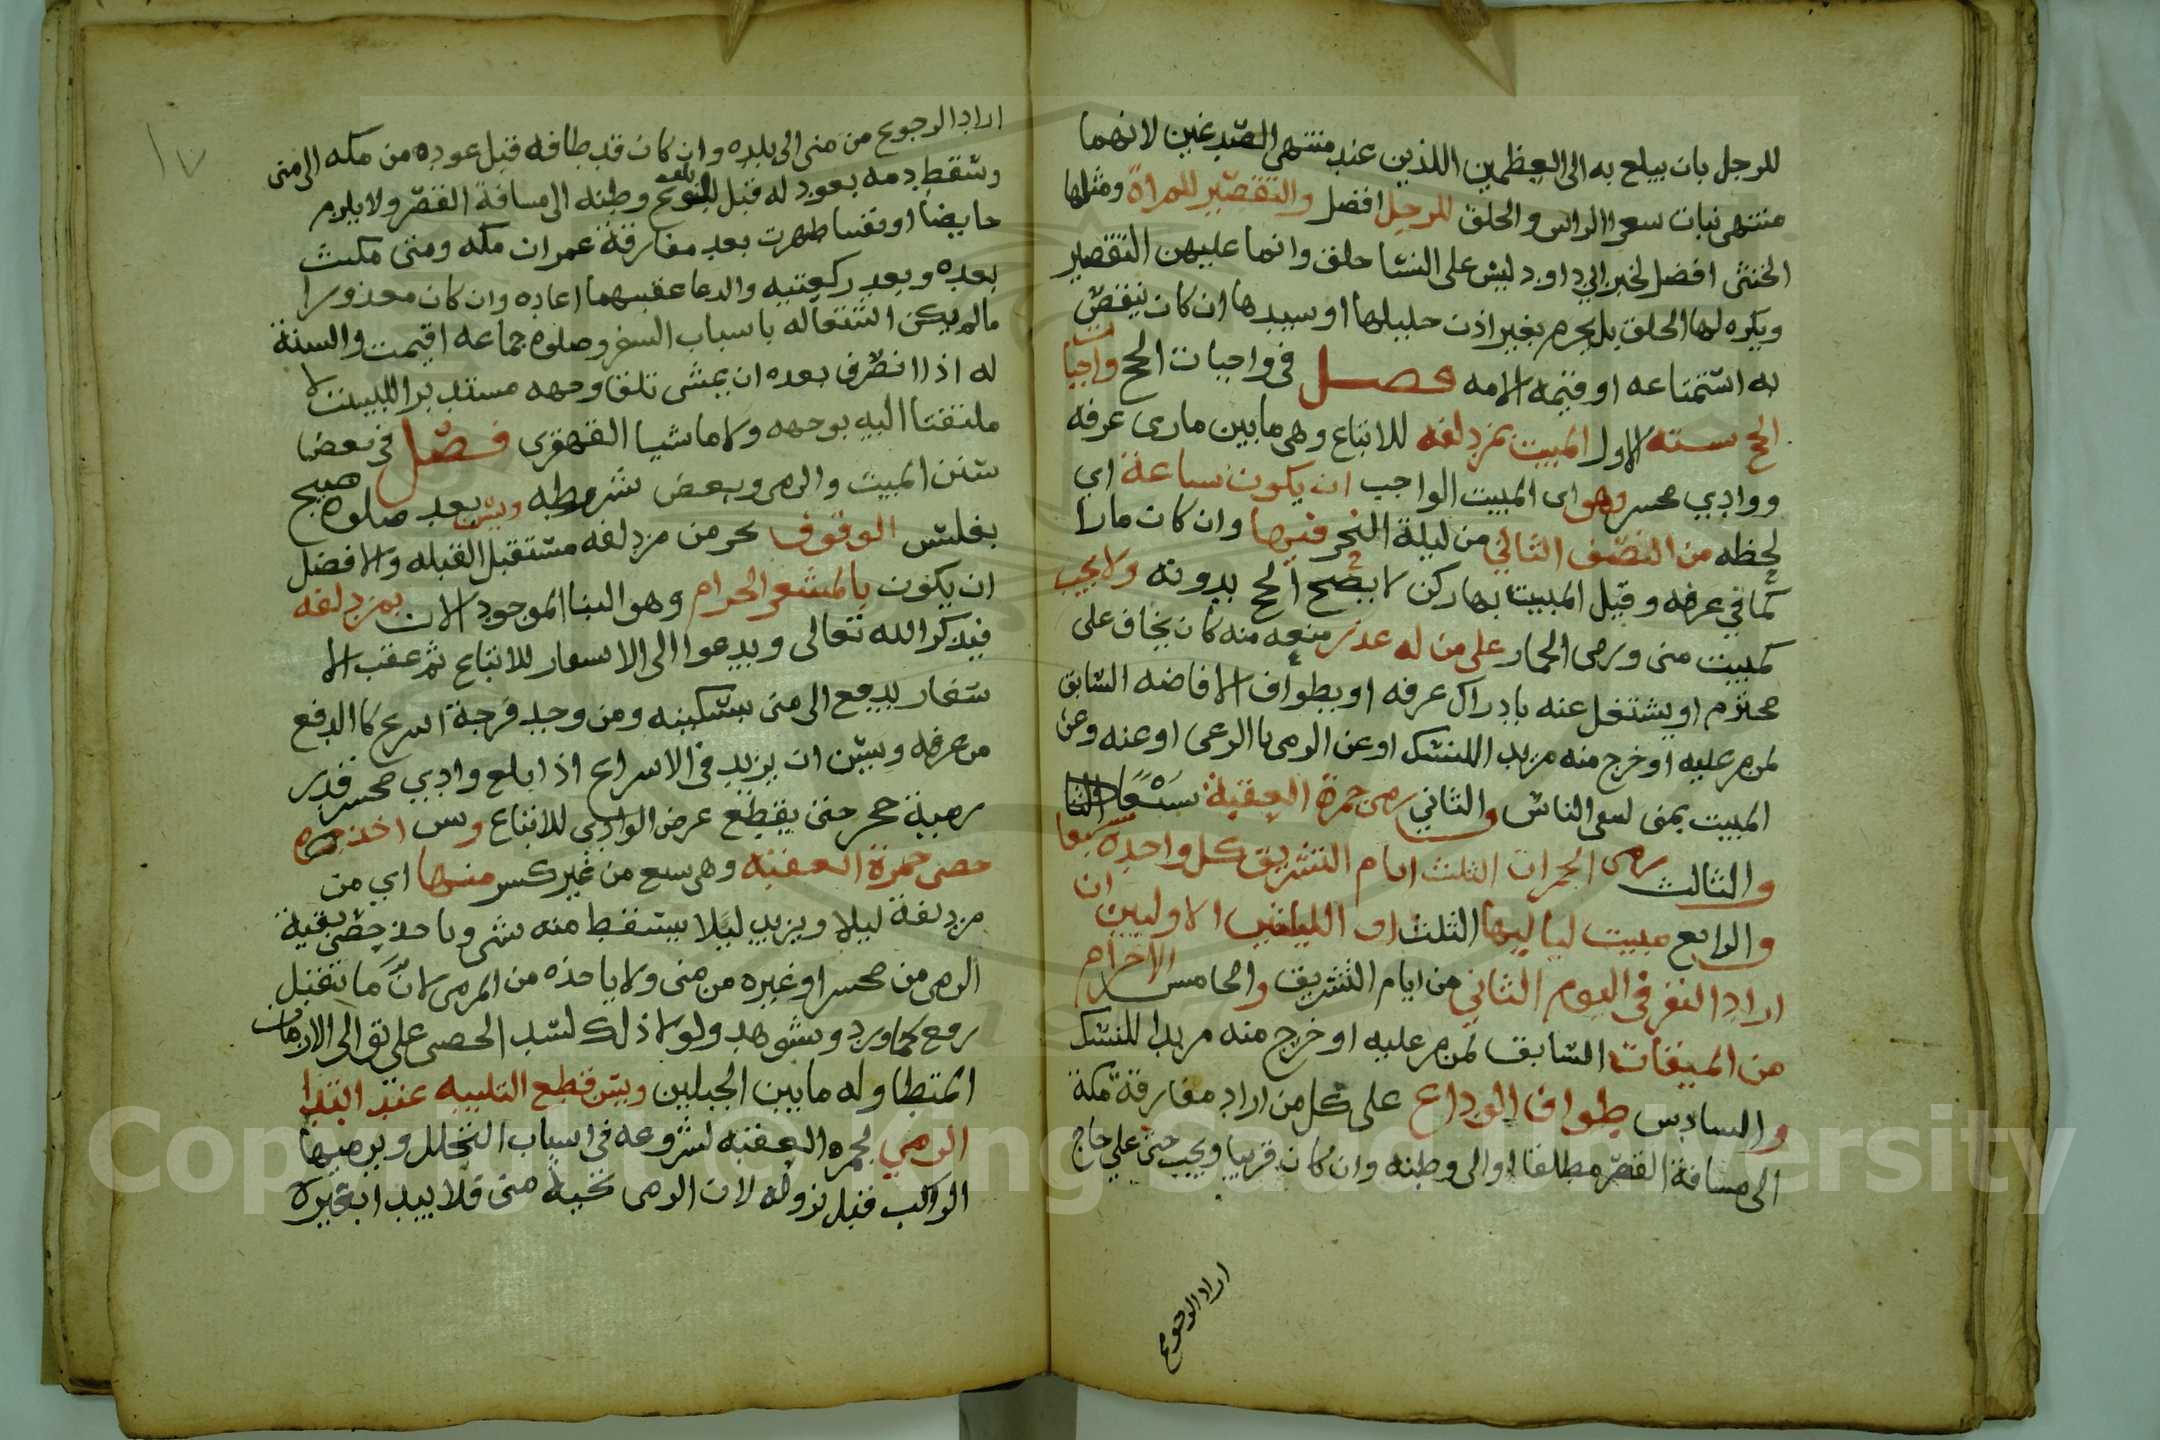 للرجل بان يبلع به الى العظمين اللذين عند منتهى الصدغين لانهما
منتهى نبات سعر الراس والحلق للرجل افضل والتقصير للمراة ومثلها
الخنثى افضل لخبر ابي داود ليس على النسا حلق وانما عليهن التقصير
ويكره لها الحلق بل يحرم بغير اذن حليلها او سيدها ان كان ينقص
به استمتاعه او قيمه الامه فصل في واجبات الحج واجبات
الحج سته الاول المبيت بمزدلفه للاتباع وهي مابين مازمي عرفه
ووادي محسر وهو اى المبيت الواجب ان يكون ساعة اي
لحظه من النصف الثاني من ليلة النحر فيها وان كان مارا
كما في عرفه وقيل المبيت بها ركن لا يصح الحج بدونه ولا يجب
كمبيت منى ورمى الجمار على من له عذر منعه منه كان يخاف على
محترم او يشتغل عنه بادراك عرفه او بطواف الافاضه السابق
لمن مر عليه او خرج منه مريد النسك او عن الرمى بالرعى او عنه وعن
المبيت بمنى لسقى الناس والثاني رمى جمرة العقبة سبعا
والثالث رمى الجمرات الثلث ايام التشريق كل واحده سبعا
والرابع مبيت لياليها الثلث او الليلتين الاوليين ان
اراد النفر في اليوم الثاني من ايام التشريق والخامس الاحرام
من الميقات السابق لمن مر عليه او خرج منه مريدا للنسك
والسادس طواف الوداع على كل من اراد مفارقة مكة
الى مسافة القصر مطلقا او الى وطنه وان كان قريبا ويجب حتى على حاج
اراد الرجوع
١٧
اراد الرجوع من منى الى بلده وان كان قد طافه قبل عوده من مكه الى منى
وسقط دمه بعوده له قبل بلوغ وطنه الى مسافة القصر ولا يلزم
حايضا او نفسا طهرت بعد مفارقة عمران مكه ومتى مكث
بعده وبعد ركعتيه والدعا عقبهما اعاده وان كان معذورا
مالم يكن اشتغاله باسباب السفر وصلوه جماعه اقيمت والسنة
له اذا انصرف بعده ان يمشى تلقا وجهه مستدبر البيت لا
ملتفتا اليه بوجهه ولا ماشيا القهقرى فصل في بعض
سنن المبيت والرمى وبعض شروطه ويسن بعد صلوه صبح
بغلس الوقوف بحر من مزدلفه مستقبل القبله والافضل
ان يكون بالمشعر الحرام وهو البنا الموجود الان بمزدلفه
فيذكر الله تعالى ويدعوا الى الاسفار للاتباع ثم عقب الا
سفار يدفع الى منى بسكينه ومن وجد فرجة اسرع كالدفع
من عرفه ويسن ان يزيد في الاسراع اذا بلع وادي محسر قدر
رمية حجر حتى يقطع عرض الوادي للاتباع وسن اخذ
حصى جمرة العقبه وهى سبع من غير كسر منها اي من
مزدلفة ليلا ويزيد ليلا يسقط منه شى وياخذ حصى بقية
الرمى من محسر او غيره من منى ولا ياخذه من المرمى لان ما تقبل
رفع كما ورد وشوهد ولولا ذلك لسد الحصى على توالى الازمان
المتطاوله مابين الجبلين ويسن قطع التلبيه عند ابتدا
الرمي لجمره العقبه لشروعه في اسباب التحلل ويرميها
الراكب قبل نزوله لان الرمى تحية منى فلا يبدا بغيره